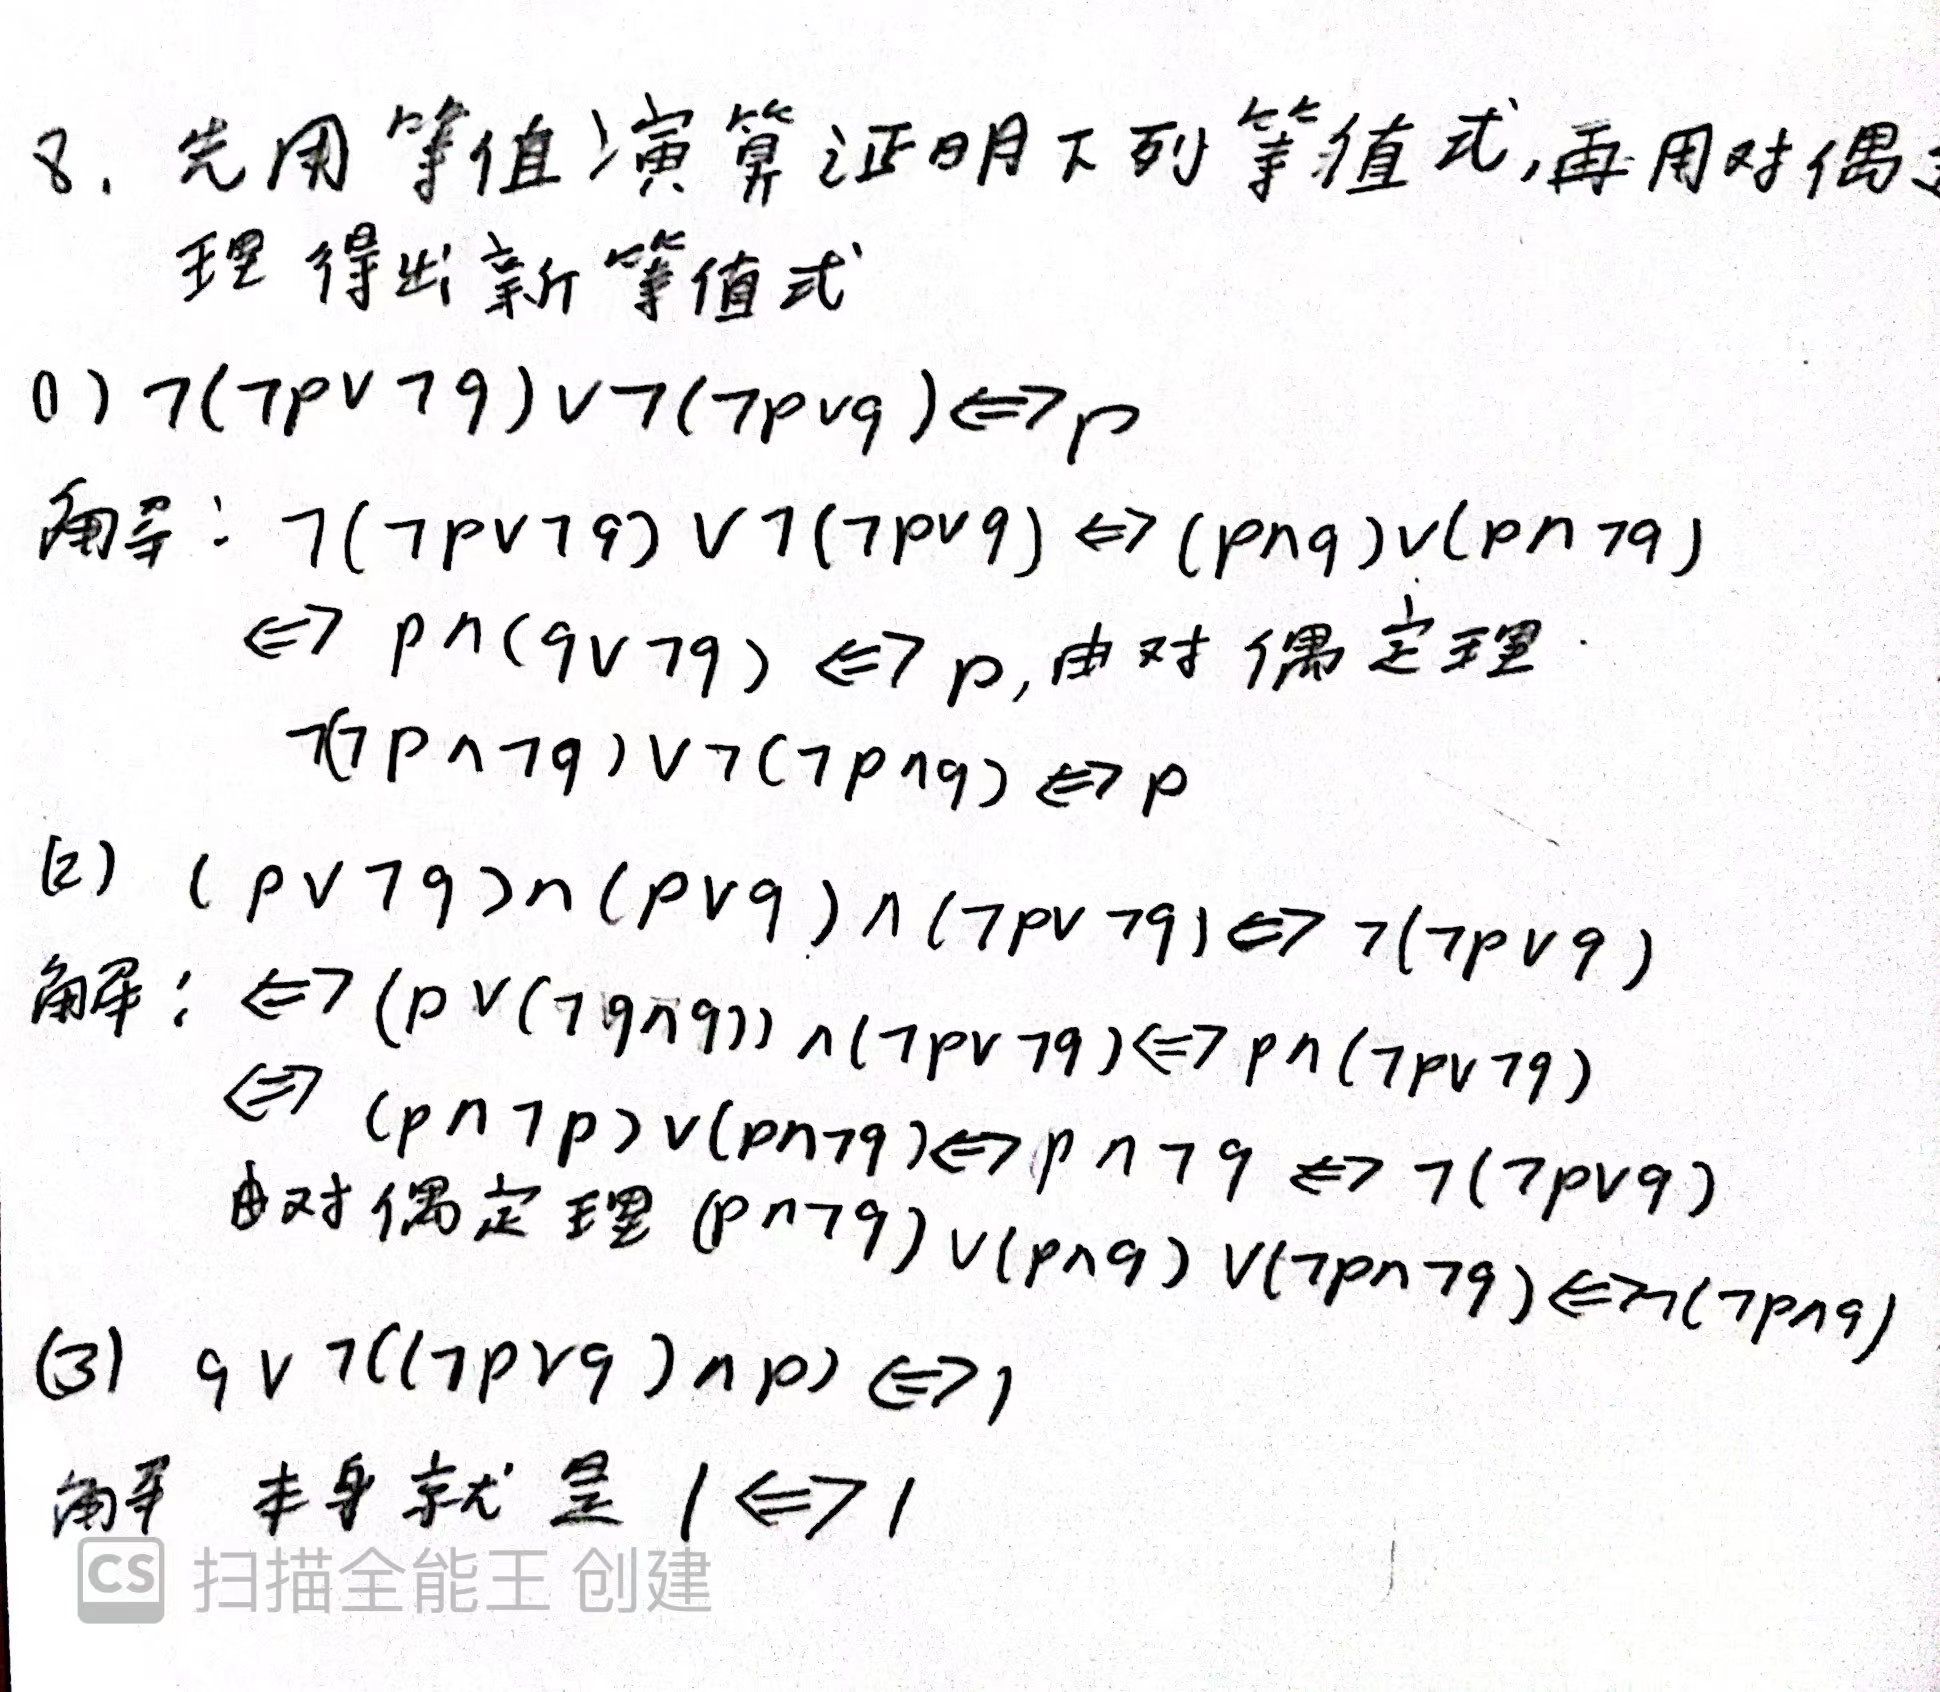 8. 先用等值演算证明下列等值式,再用对偶定
理得出新等值式
(1) ¬(¬p∨¬q)∨¬(¬p∨q)⇔p
解: ¬(¬p∨¬q)∨¬(¬p∨q)⇔(p∧q)∨(p∧¬q)
⇔ p∧(q∨¬q) ⇔ p,由对偶定理
¬(¬p∧¬q)∨¬(¬p∧q)⇔p
(2) (p∨¬q)∧(p∨q)∧(¬p∨¬q)⇔¬(¬p∨q)
解: ⇔(p∨(¬q∧q))∧(¬p∨¬q)⇔p∧(¬p∨¬q)
⇔ (p∧¬p)∨(p∧¬q)⇔p∧¬q⇔¬(¬p∨q)
由对偶定理 (p∧¬q)∨(p∧q)∨(¬p∧¬q)⇔¬(¬p∧q)
(3) q∨¬((¬p∨q)∧p)⇔1
解 本身就是 1⇔1
CS 扫描全能王 创建